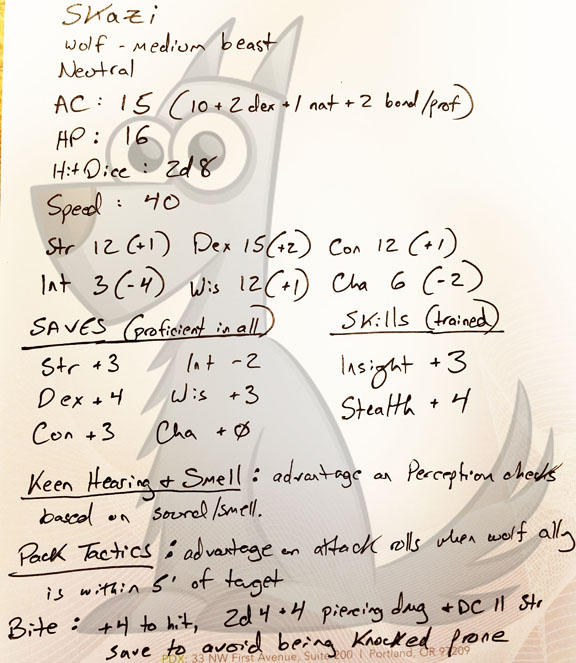 Skazi
wolf - medium beast
Neutral
AC: 15 (10 + 2 dex + 1 nat + 2 bond/prof)
HP: 16
Hit Dice: 2d8
Speed: 40
Str 12 (+1) Dex 15 (+2) Con 12 (+1)
Int 3 (-4) Wis 12 (+1) Cha 6 (-2)
SAVES (proficient in all)
Skills (trained)
Str +3 Int -2
Insight +3
Dex +4 Wis +3
Stealth +4
Con +3 Cha +0
Keen Hearing & Smell: advantage on Perception checks
based on sound/smell.
Pack Tactics: advantage on attack rolls when wolf ally
is within 5' of target
Bite: +4 to hit, 2d4+4 piercing dmg + DC 11 Str
save to avoid being knocked prone
PDX: 33 NW First Avenue, Suite 200 | Portland, OR 97209